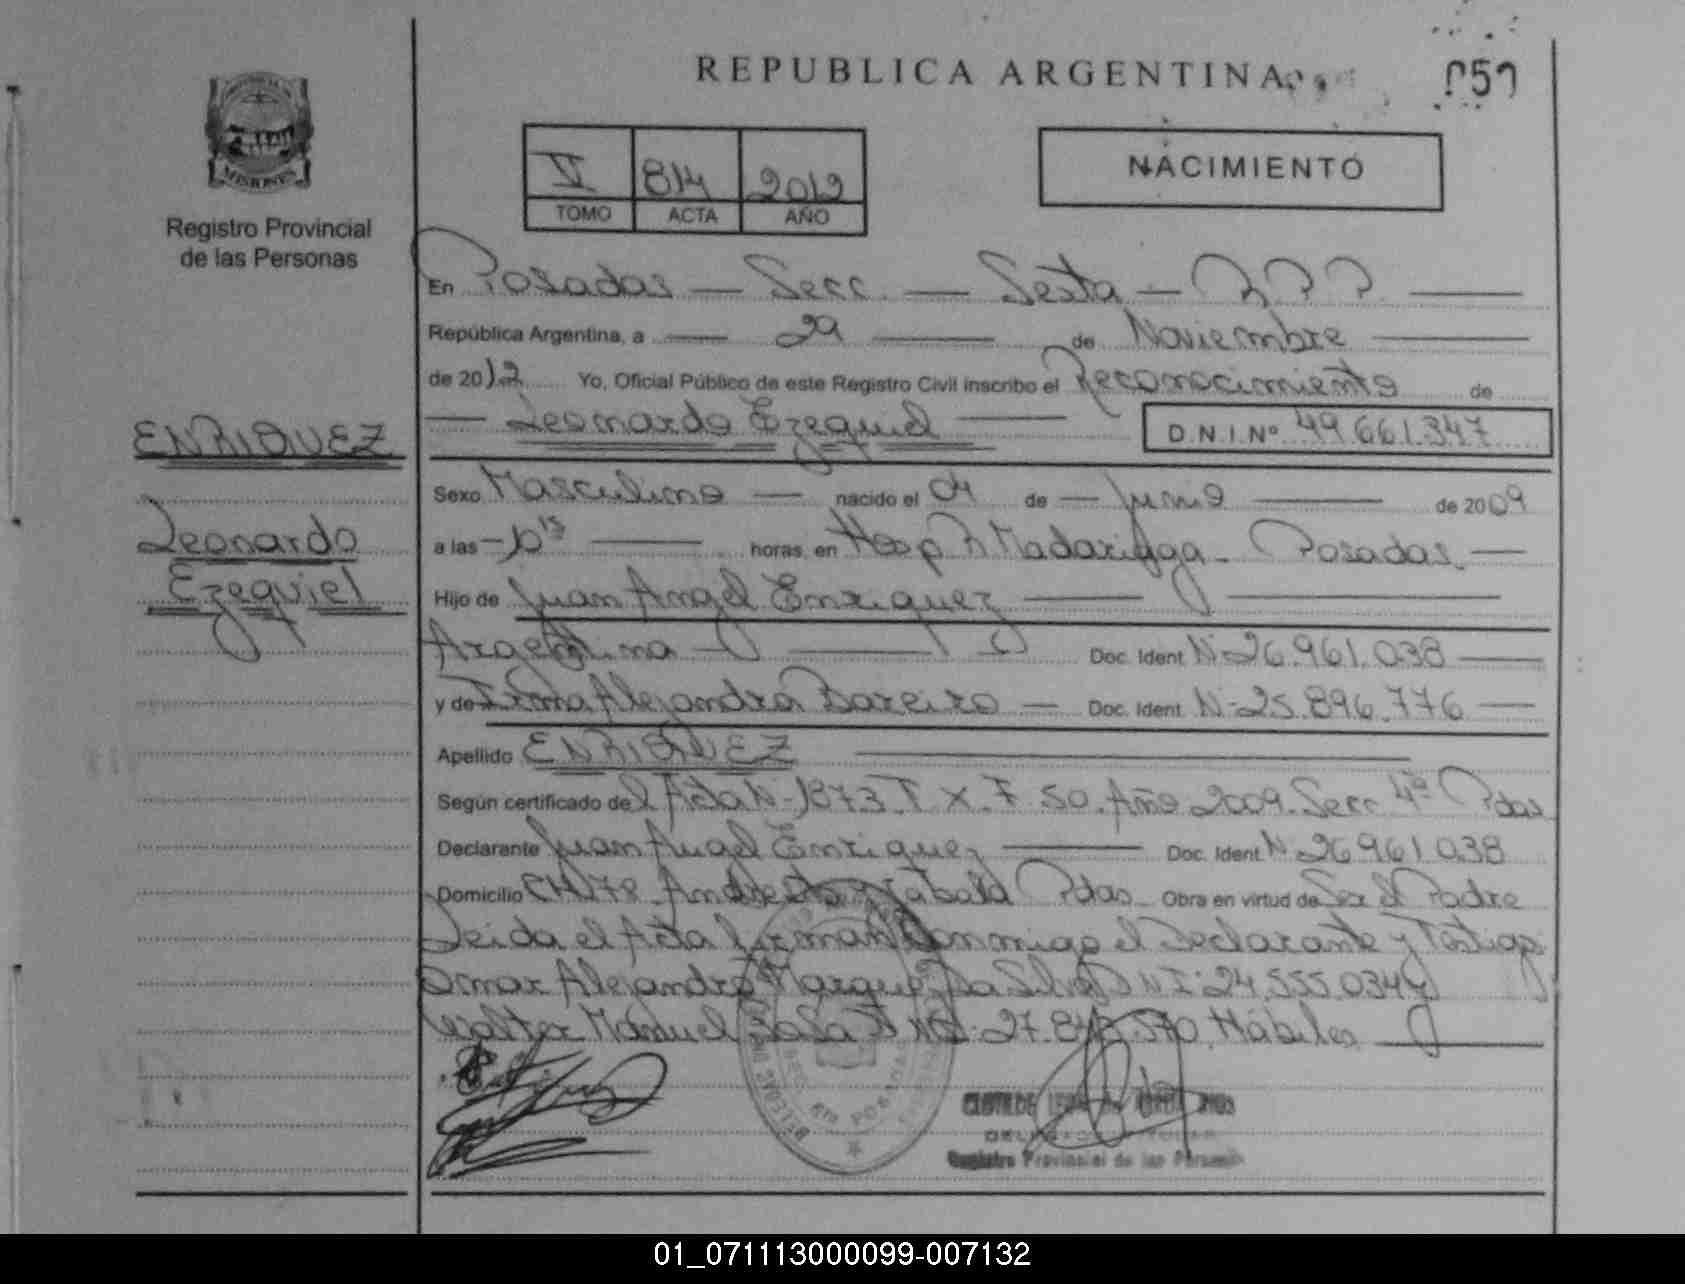 REPUBLICA ARGENTINA
059
MISIONES
Registro Provincial
de las Personas
V 814 2012
TOMO ACTA AÑO
NACIMIENTO
En Posadas — Secc. — Sexta — R P P
República Argentina, a — 29 — de Noviembre
de 2012 Yo, Oficial Público de este Registro Civil inscribo el Reconocimiento de
— Leonardo Ezequiel — D.N.I.Nº 49.661.347
ENRIQUEZ
Leonardo
Ezequiel
Sexo Masculino — nacido el 04 de — Junio — de 2009
a las - 10 15 — horas, en Hosp R Madariaga - Posadas —
Hijo de Juan Angel Enriquez —
Argentina — Doc. Ident. Nº 26.961.038 —
y de Irma Alejandra Bareiro — Doc. Ident. Nº 25.896.776 —
Apellido ENRIQUEZ —
Según certificado de l Acta Nº 1873 T X F 50 Año 2009 Secc 4ª Pdas
Declarante Juan Angel Enriquez — Doc. Ident. Nº 26961038
Domicilio CH 78 Pdas Obra en virtud de Ser el Padre
Leida el Acta firman conmigo el Declarante y Testigos
Omar Alejandro Marquez Da Silva DNI: 24.555.034 y
Walter Manuel Sosa DNI: 27. Hábiles —
Registro Provincial de las Personas
01_071113000099-007132